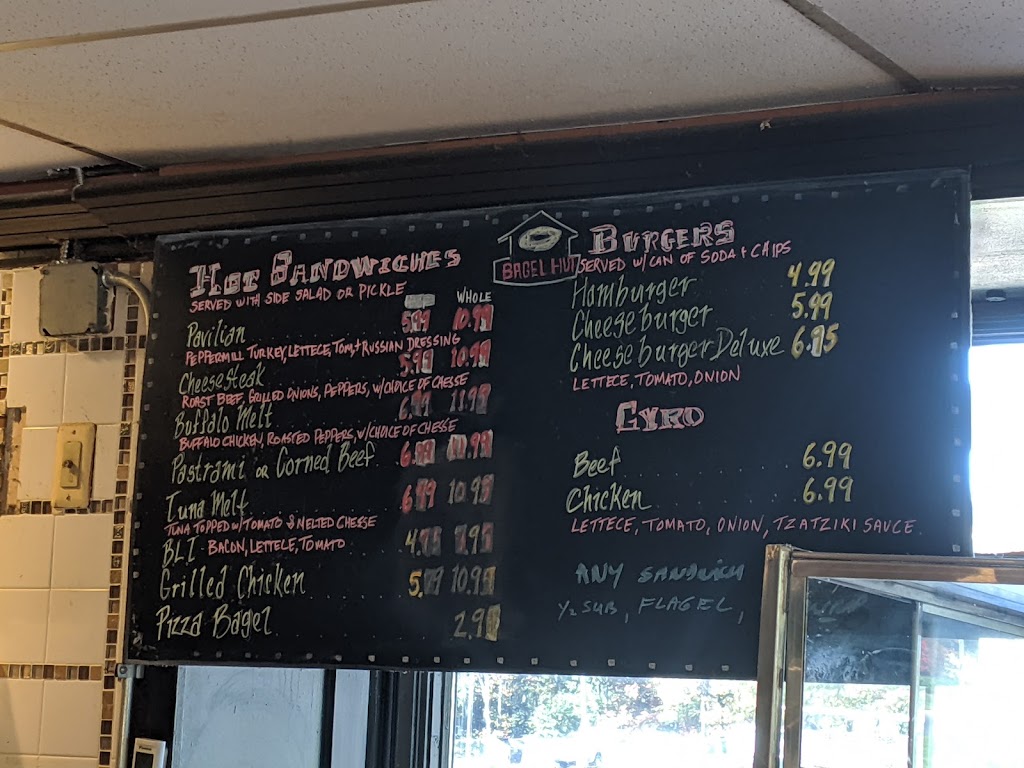 Hot Sandwiches
SERVED WITH SIDE SALAD OR PICKLE
WHOLE
Pavilian 5.99 10.99
PEPPERMILL TURKEY, LETTECE, TOM, + RUSSIAN DRESSING
Cheese Steak 5.99 10.99
ROAST BEEF, GRILLED ONIONS, PEPPERS, W/CHOICE OF CHEESE
Buffalo Melt 6.99 11.99
BUFFALO CHICKEN, ROASTED PEPPERS, W/CHOICE OF CHEESE
Pastrami OR Corned Beef 6.99 11.99
Tuna Melt 6.99 10.95
TUNA TOPPED W/TOMATO & MELTED CHEESE
BLT BACON, LETTECE, TOMATO
Grilled Chicken 10.95
Pizza Bagel
BAGEL HUT
BURGERS
SERVED W/CAN OF SODA + CHIPS
Hamburger 4.99
Cheeseburger 5.99
Cheeseburger Deluxe 6.95
LETTECE, TOMATO, ONION
GYRO
Beef 6.99
Chicken 6.99
LETTECE, TOMATO, ONION, TZATZIKI SAUCE
ANY SANDWICH
½ SUB, FLAGEL,